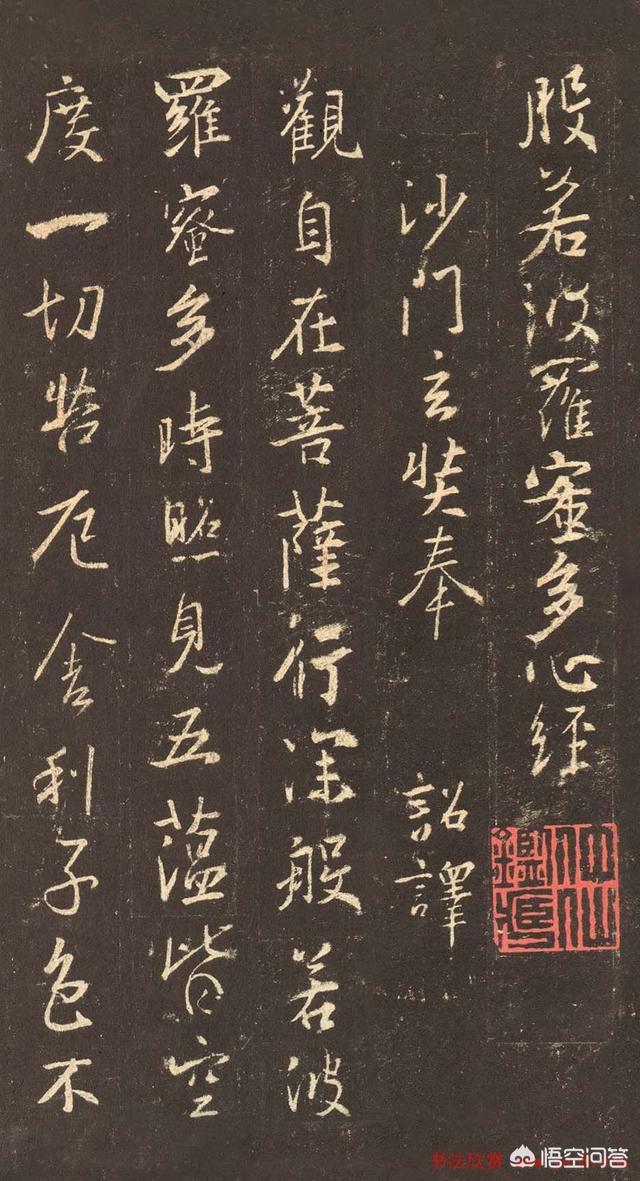 般若波羅蜜多心經
沙門玄奘奉 詔譯
觀自在菩薩行深般若波
羅蜜多時照見五蘊皆空
度一切苦厄舍利子色不
书法欣赏
悟空问答